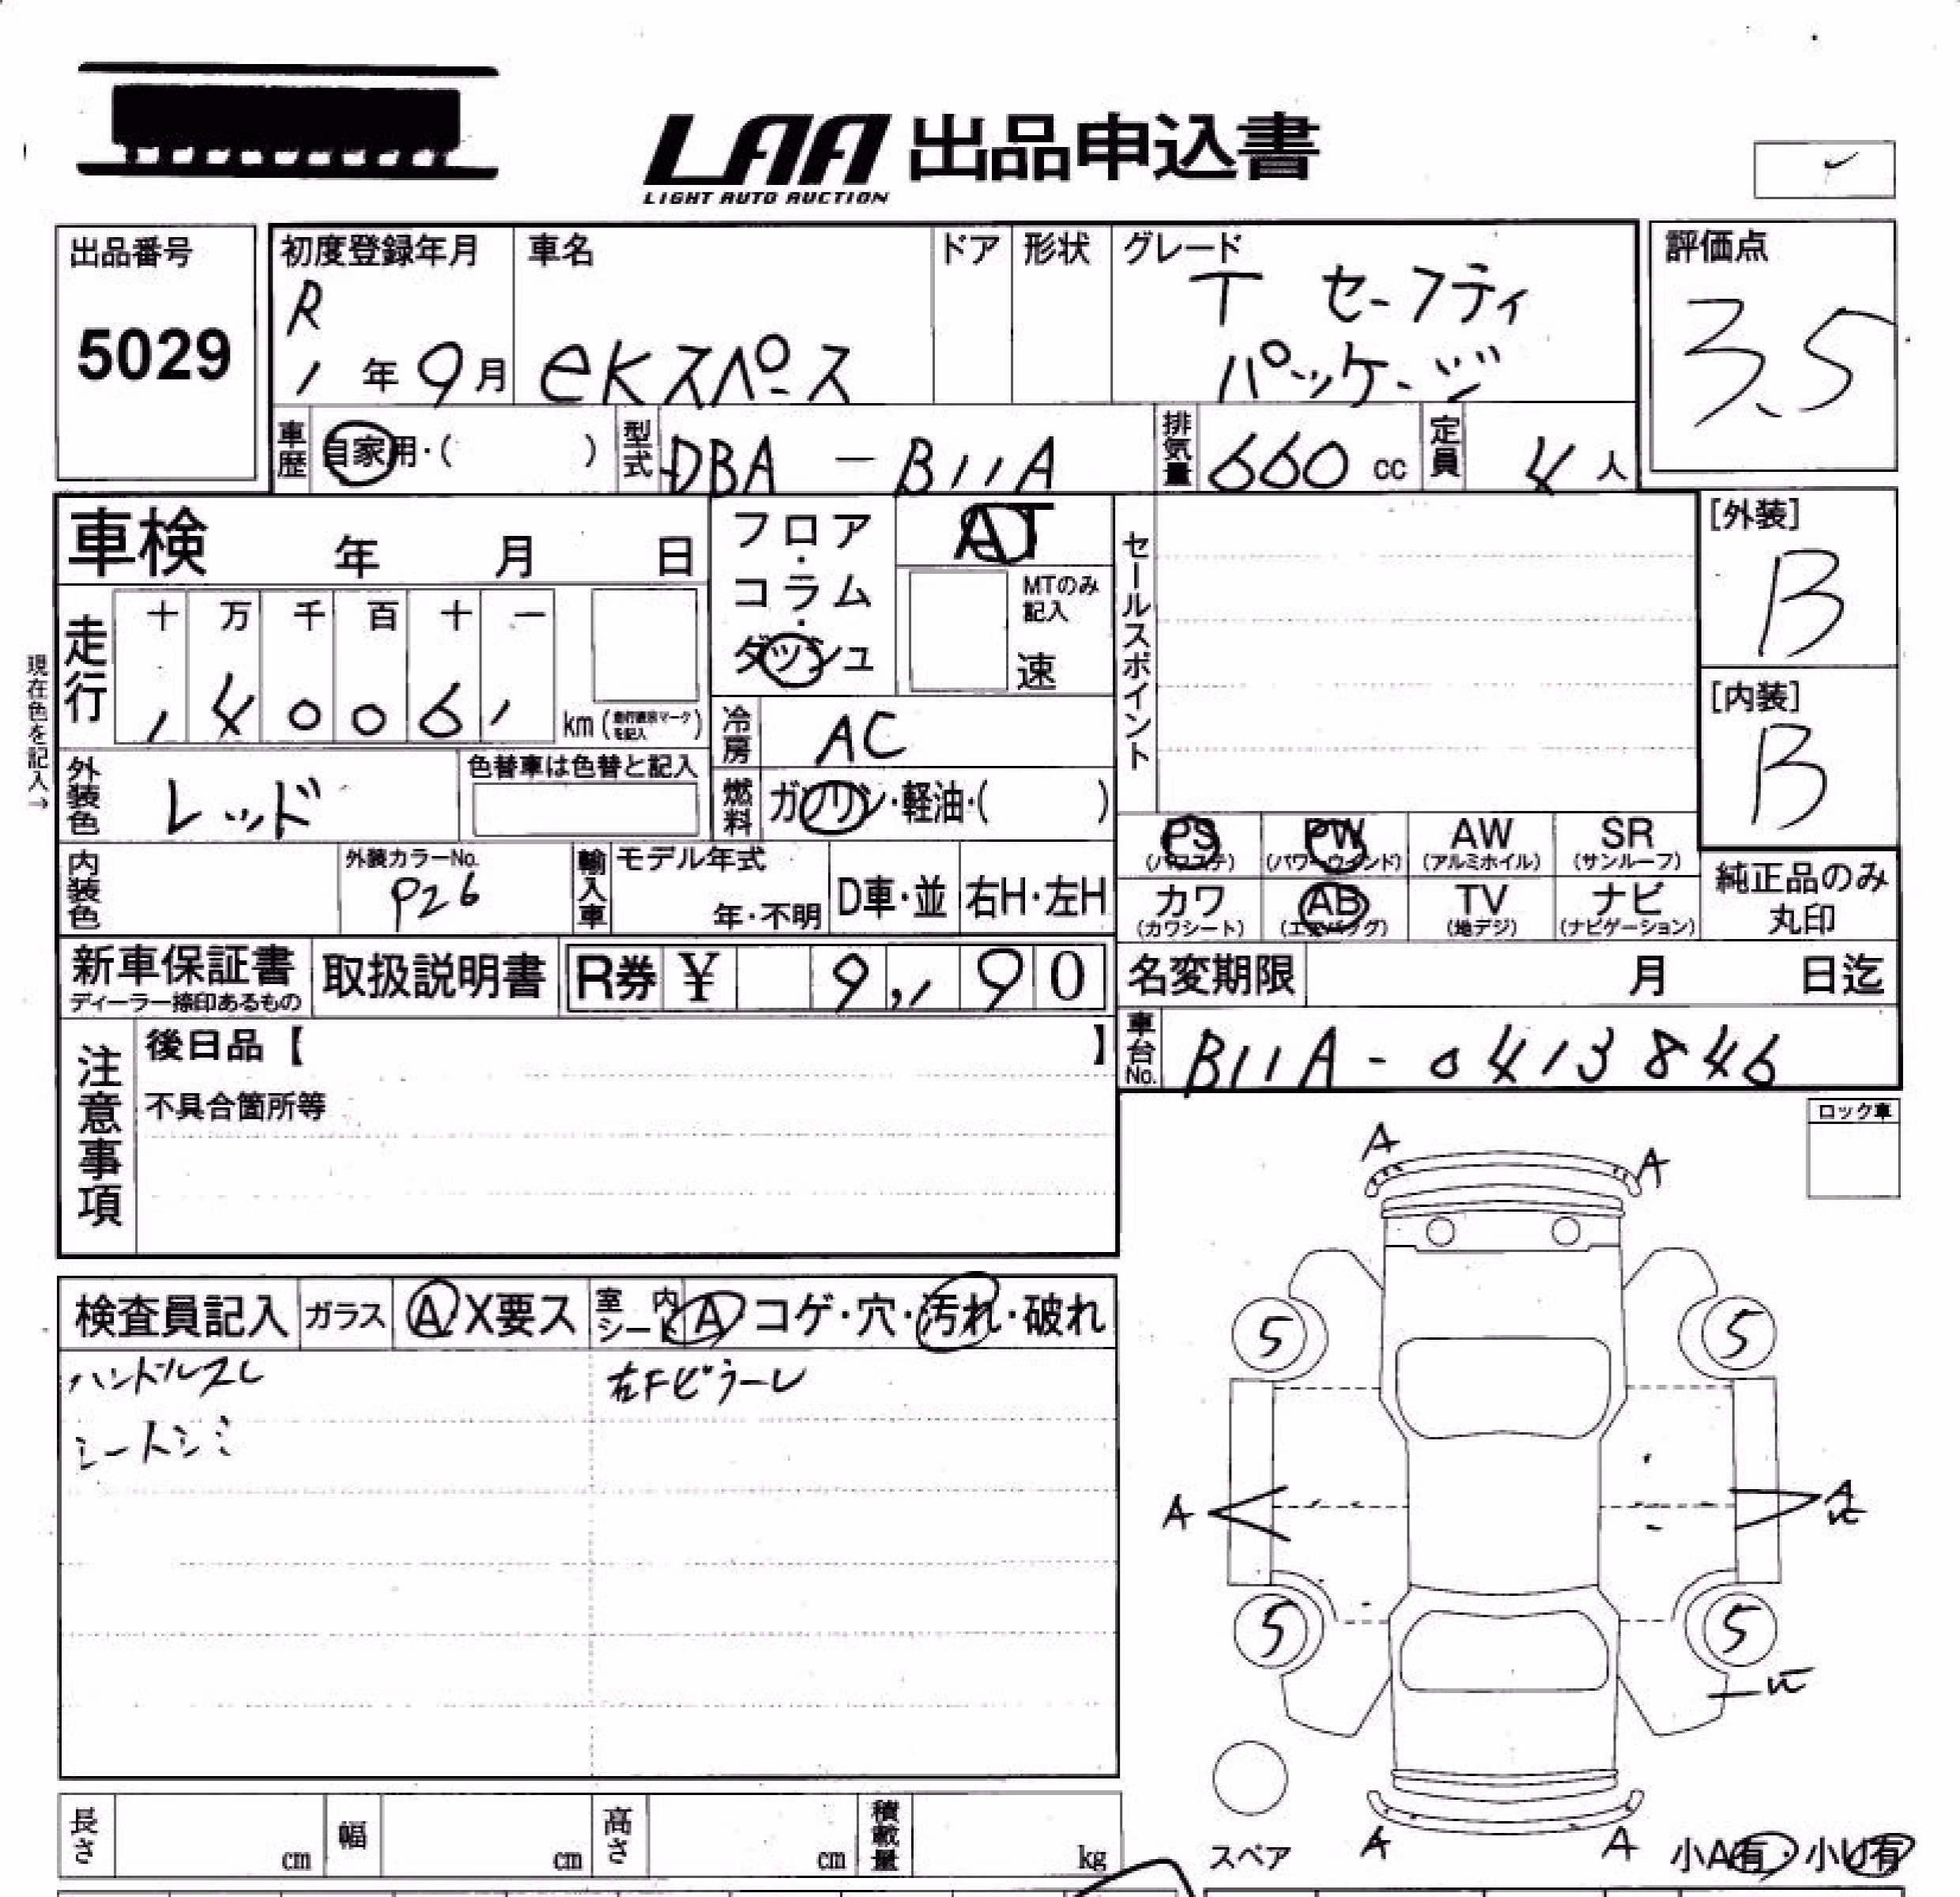 LAA 出品申込書
LIGHT AUTO AUCTION
出品番号
5029
初度登録年月
R
1 年 9 月
車名
eKスペース
ドア
形状
グレード
T セーフティ
パッケージ
評価点
3.5
車歴
自家用・( )
型式
DBA - B11A
排気量
660 cc
定員
4 人
車検 年 月 日
フロア・コラム・ダッシュ
AT
MTのみ記入
速
セールスポイント
[外装]
B
[内装]
B
現在色を記入→
走行
十 万 千 百 十 一
1 4 0 0 6 1
km (走行表示マークを記入)
冷房
AC
外装色
レッド
色替車は色替と記入
燃料
ガソリン・軽油・( )
PS (パワステ)
PW (パワーウインド)
AW (アルミホイル)
SR (サンルーフ)
カワ (カワシート)
AB (エアバッグ)
TV (地デジ)
ナビ (ナビゲーション)
純正品のみ丸印
内装色
外装カラーNo.
P26
輸入車
モデル年式
年・不明
D車・並
右H・左H
新車保証書
ディーラー捺印あるもの
取扱説明書
R券 ¥ 9,190
名変期限 月 日迄
車台No.
B11A - 0413846
注意事項
後日品【 】
不具合箇所等
ロック車
A A
検査員記入
ガラス
A X要ス
室内シート
A コゲ・穴・汚れ・破れ
ハンドルスレ
右Fピラーレ
シートシミ
5 5
A A
5 5
A A
スペア
小A有・小U有
長さ cm
幅 cm
高さ cm
積載量 kg